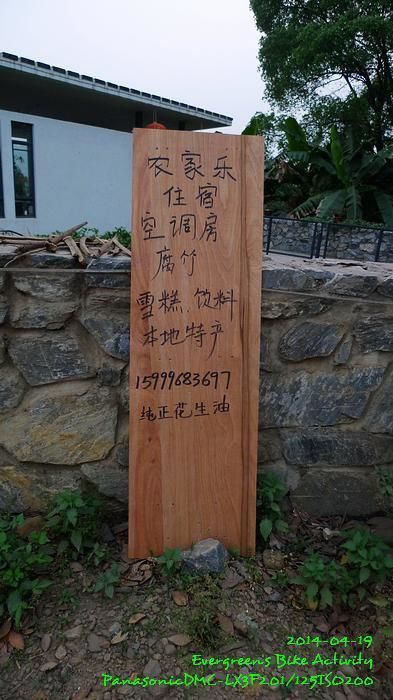 农家乐
住宿
空调房
腐竹
雪糕.饮料
本地特产
15999683697
纯正花生油
2014-04-19
Evergreen's Bike Activity
PanasonicDMC-LX3F2.01/125ISO200